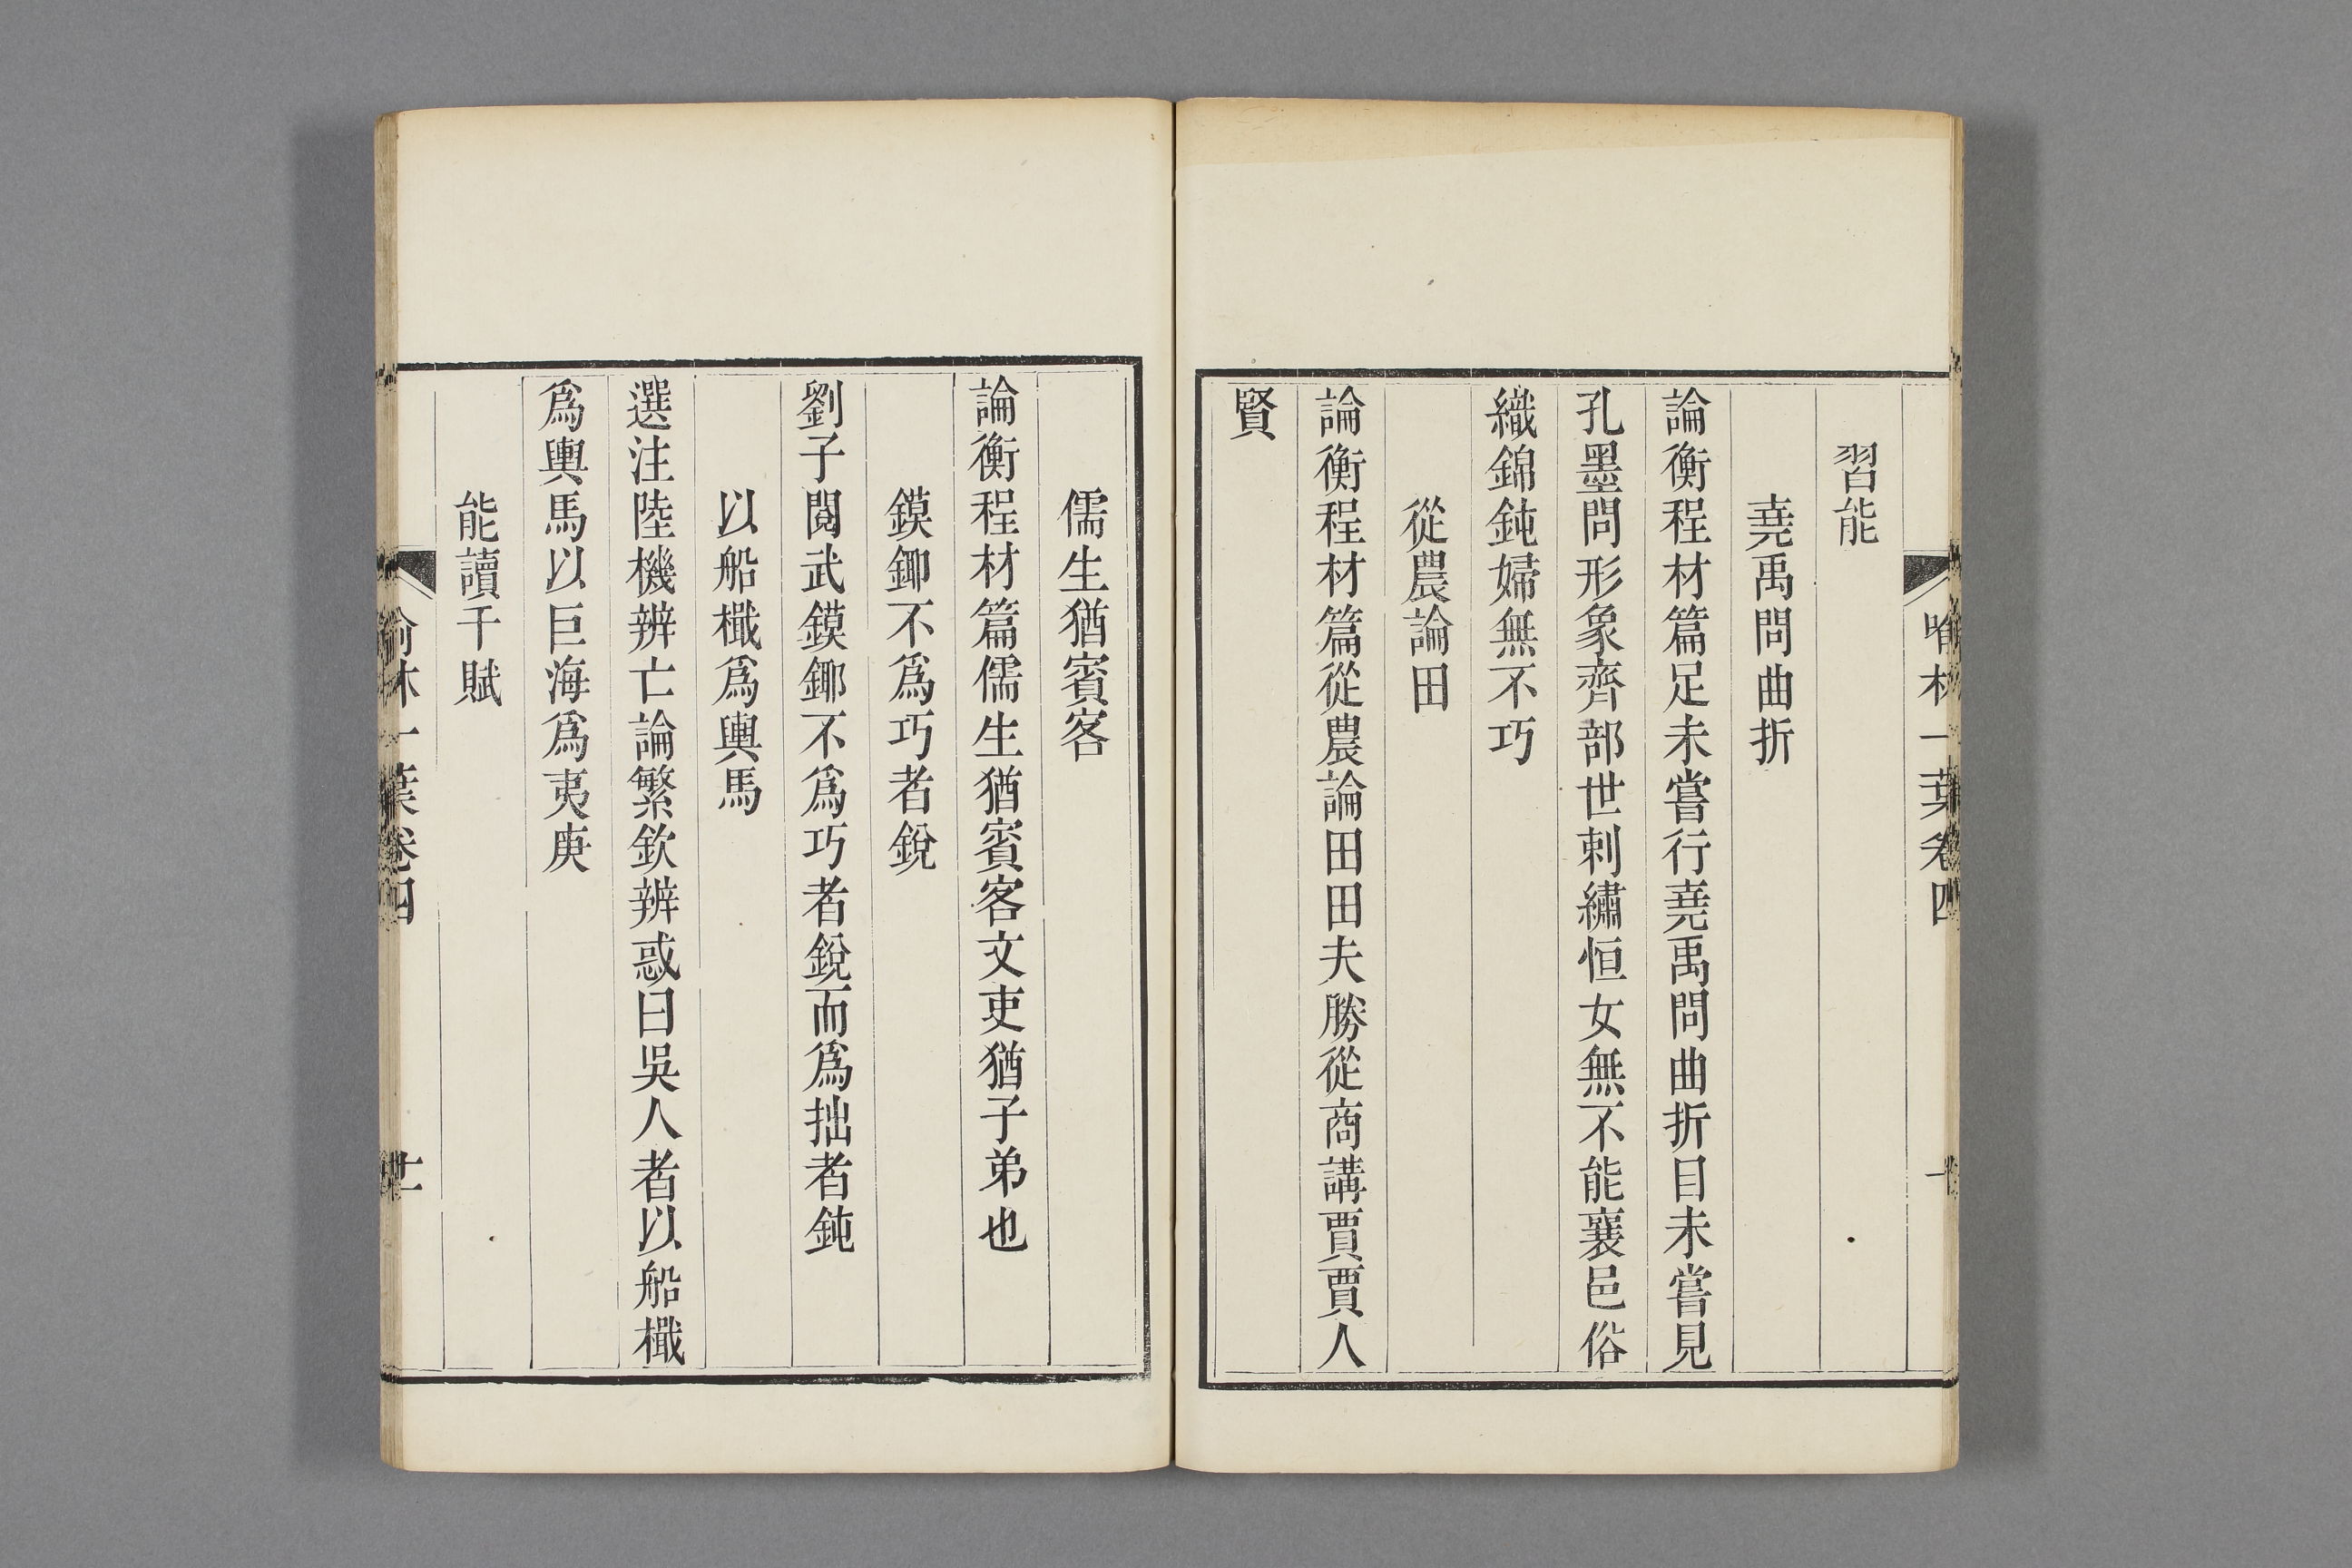 習能
堯禹問曲折
論衡程材篇足未嘗行堯禹問曲折目未嘗見
孔墨問形象齊部世刺繡恒女無不能襄邑俗
織錦鈍婦無不巧
從農論田
論衡程材篇從農論田田夫勝從商講賈賈人
賢
儒生猶賓客
論衡程材篇儒生猶賓客文吏猶子弟也
鏌鎁不爲巧者銳
劉子閱武鏌鎁不爲巧者銳而爲拙者鈍
以船檝爲輿馬
選注陸機辨亡論繁欽辨惑曰吳人者以船檝
爲輿馬以巨海爲夷庚
能讀千賦
喻林一葉卷四